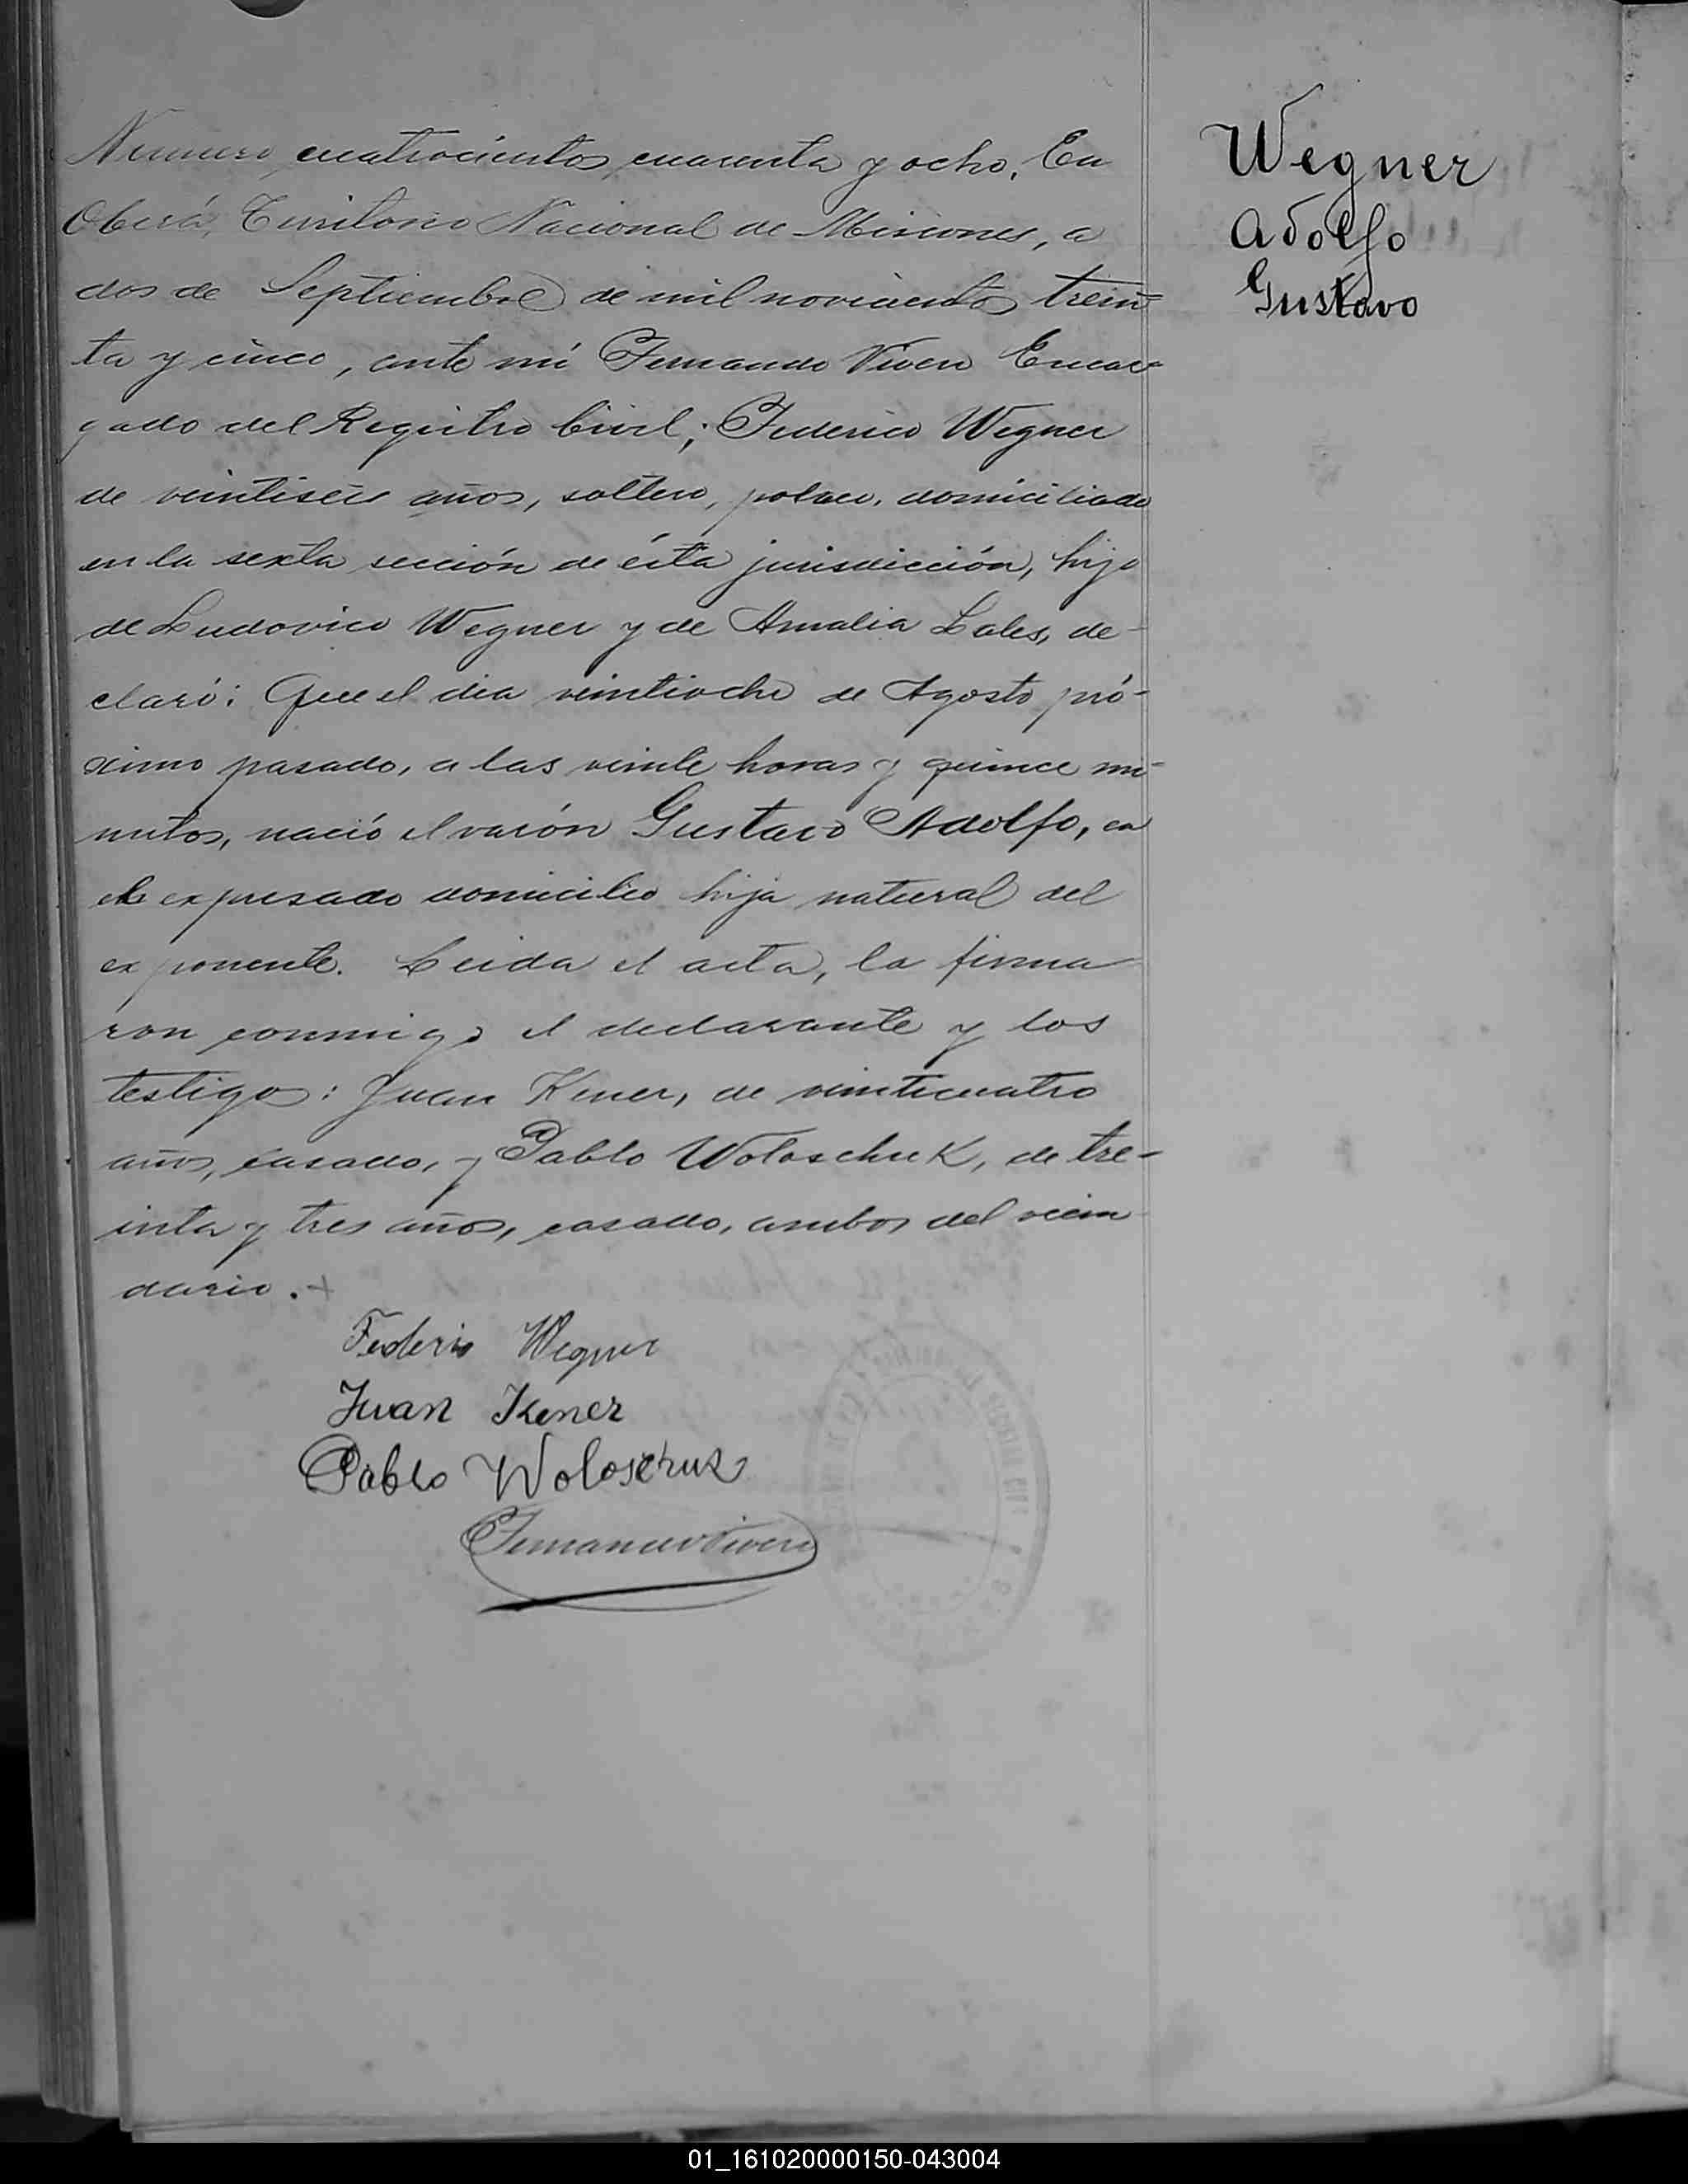 Numero cuatrocientos cuarenta y ocho. En
Oberá, Territorio Nacional de Misiones, a
dos de Septiembre de mil novecientos trein-
ta y cinco, ante mi Fernando Vivero Encar-
gado del Registro Civil; Federico Wegner
de veintiseis años, soltero, polaco, domiciliado
en la sexta sección de ésta jurisdicción, hijo
de Ludovico Wegner y de Amalia Lales, de-
claró: Que el dia veintiocho de Agosto pró-
ximo pasado, a las veinte horas y quince mi-
nutos, nació el varón Gustavo Adolfo, en
el expresado domicilio hija natural del
exponente. Leida el acta, la firma
ron conmigo el declarante y los
testigos: Juan Kener, de veinticuatro
años, casado, y Pablo Woloschuk, de tre-
inta y tres años, casado, ambos del vecin
dario.
Federico Wegner
Juan Kener
Pablo Woloschuk
Fernando Vivero
Wegner
Adolfo
Gustavo
01_161020000150-043004